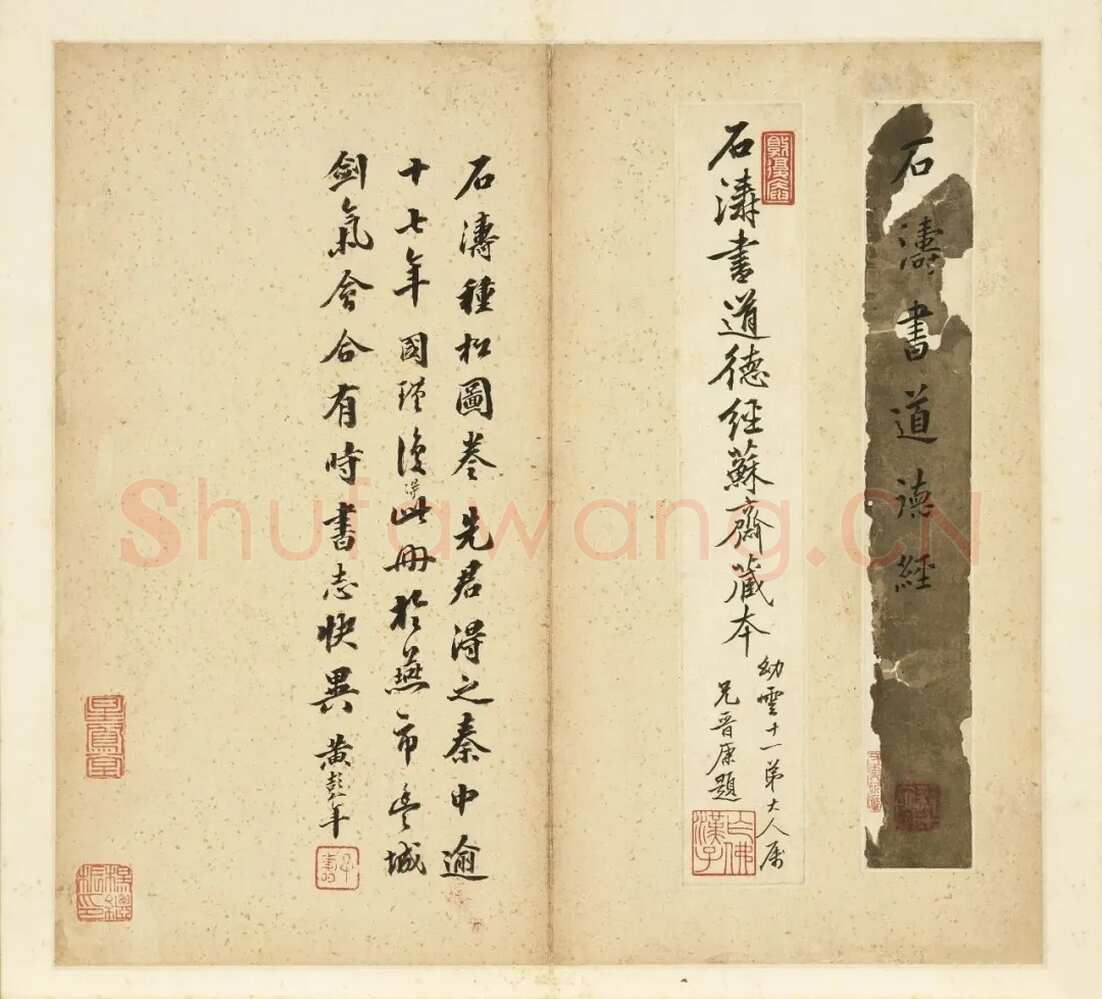 石濤書道德經
石濤書道德經蘇齋藏本
幼雲十一弟大人属
兄晉康題
石濤種松圖卷先君得之秦中逾
十七年國瑾復得此冊於燕市豐城
劍氣會合有時書志快異黃彭年
Shufawang.CN